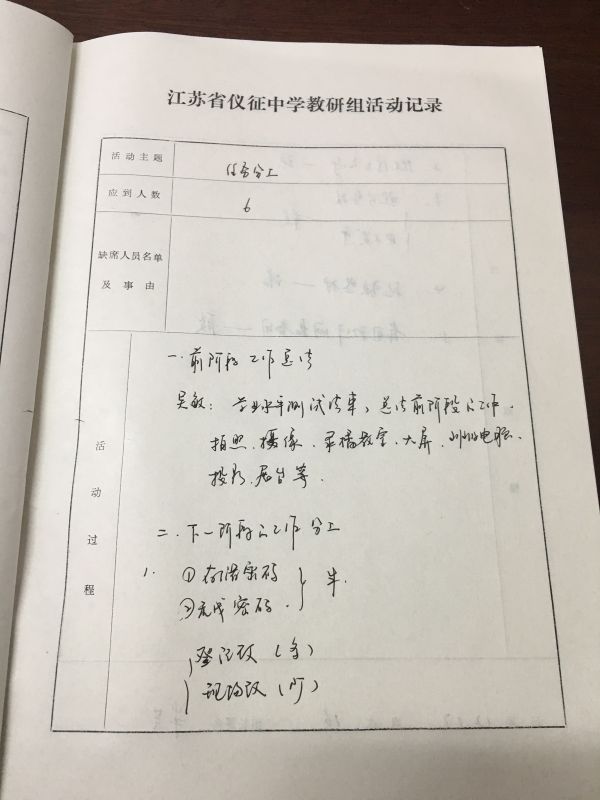 江苏省仪征中学教研组活动记录
活动主题 任务分工
应到人数 6
缺席人员名单
及事由
活动过程
一.前阶段工作总结
吴敏：学业水平测试结束，总结前阶段的工作.
拍照.摄像.录播教室.大屏.电脑.
投影.展台等.
二.下一阶段的工作分工
1. ①存储密码
②无线密码.
登记改
现场改